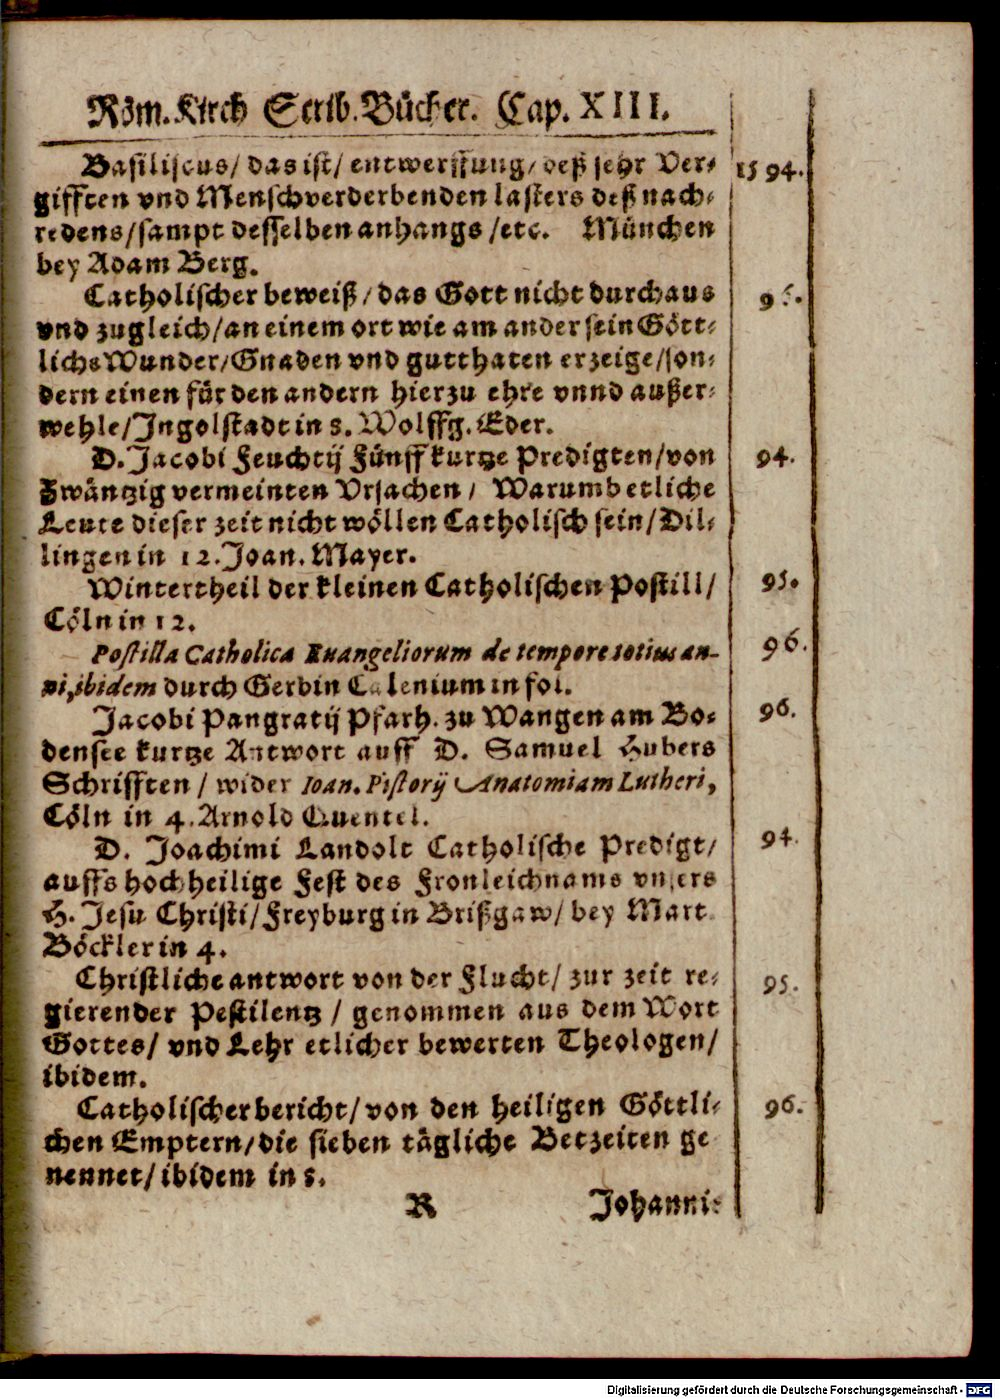 Röm. Kirch Scrib. Bücher. Cap. XIII.
Basiliscus/ das ist/ entwerffung/ deß sehr Ver- 1594.
gifften vnd Menschverderbenden lasters deß nach-
redens/ sampt desselben anhangs /etc. München
bey Adam Berg.
Catholischer beweiß/ das Gott nicht durchaus
vnd zugleich/ an einem ort wie am ander sein Gött-
lichs Wunder/ Gnaden vnd gutthaten erzeige/ son-
dern einen für den andern hierzu ehre vnnd außer-
wehle/ Ingolstadt in 8. Wolffg. Eder.
D. Jacobi Feuchtij Fünff kurtze Predigten/ von 94.
Zwäntzig vermeinten Vrsachen / Warumb etliche
Leute dieser zeit nicht wöllen Catholisch sein/ Dil-
lingen in 12. Joan. Mayer.
Wintertheil der kleinen Catholischen Postill/ 95.
Cöln in 12.
Postilla Catholica Euangeliorum de tempore totius an- 96.
ni, ibidem durch Gervin Calenium in fol.
Jacobi Pangratij Pfarh. zu Wangen am Bo- 96.
densee kurtze Antwort auff D. Samuel Hubers
Schrifften / wider Ioan. Pistorij Anatomiam Lutheri,
Cöln in 4. Arnold Quentel.
D. Joachimi Landolt Catholische Predigt/ 94.
auffs hochheilige Fest des Fronleichnams vnsers
H. Jesu Christi/ Freyburg in Brißgaw/ bey Mart.
Böckler in 4.
Christliche antwort von der Flucht/ zur zeit re- 95.
gierender Pestilentz / genommen aus dem Wort
Gottes/ vnd Lehr etlicher bewerten Theologen/
ibidem.
Catholischer bericht/ von den heiligen Göttli- 96.
chen Emptern/ die sieben tägliche Betzeiten ge
nennet/ ibidem in 8.
R Johanni-
Digitalisierung gefördert durch die Deutsche Forschungsgemeinschaft - DFG